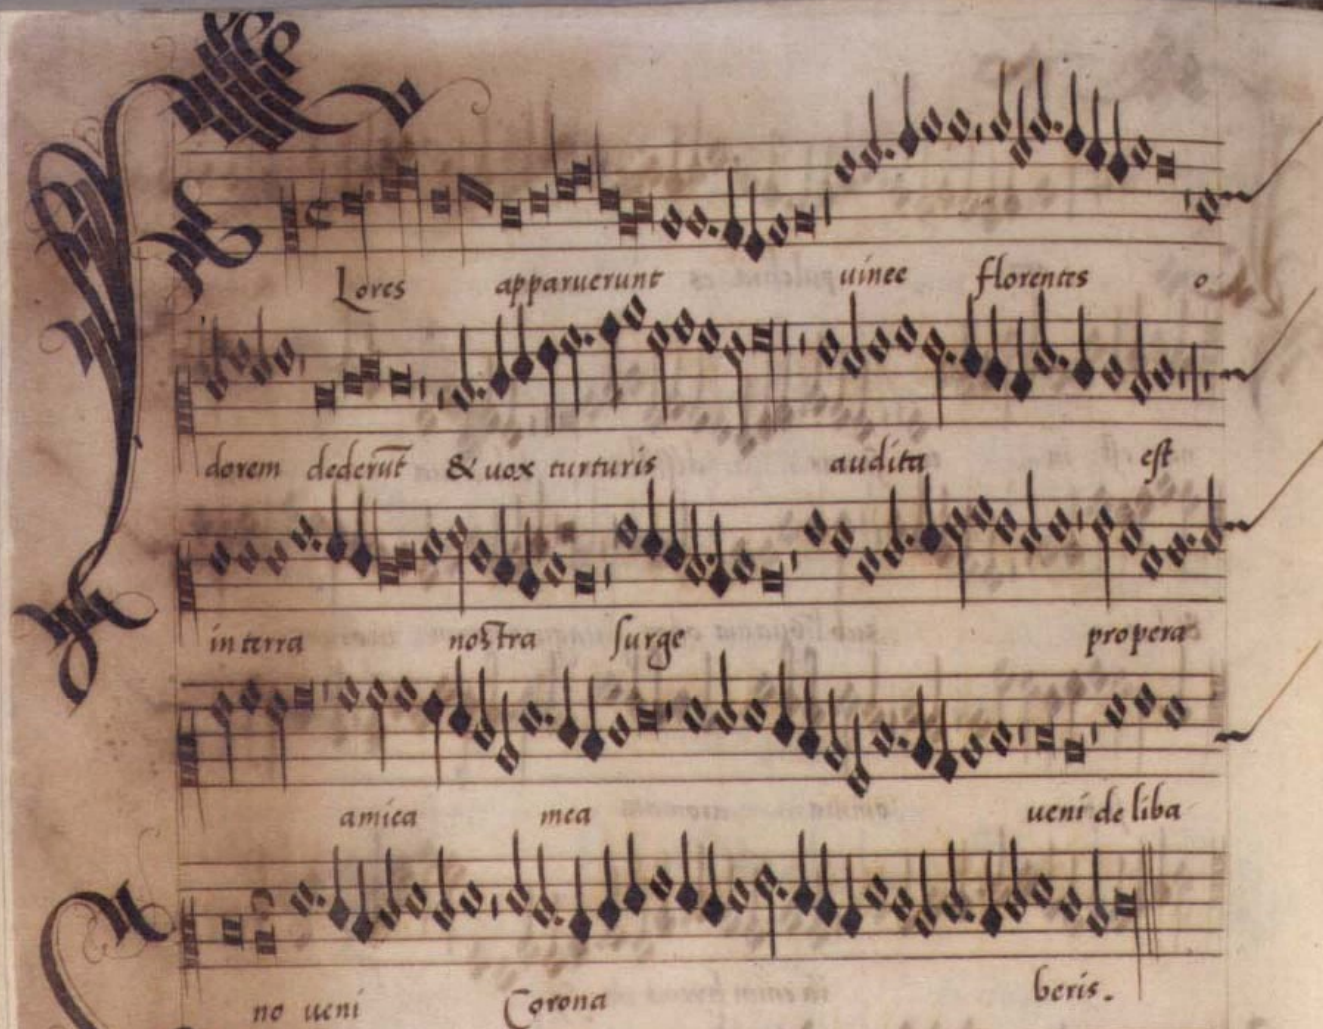 Flores apparuerunt vinee florentes o
dorem dederūt & vox turturis audita est
in terra nostra surge propera
amica mea veni de liba
no veni Corona beris.